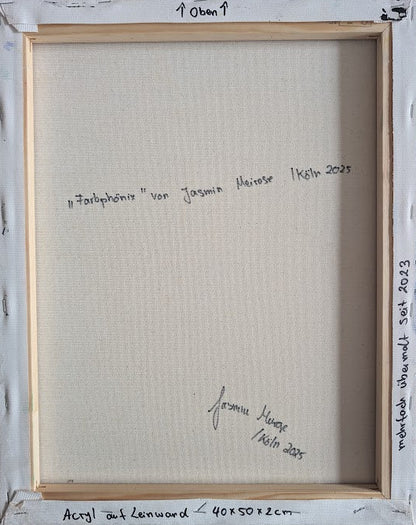 ↑ Oben ↑
„Farbphönix" von Jasmin Meirose /Köln 2025
mehrfach übermalt seit 2023
Jasmin Meirose
/Köln 2025
Acryl auf Leinwand - 40x50x2cm